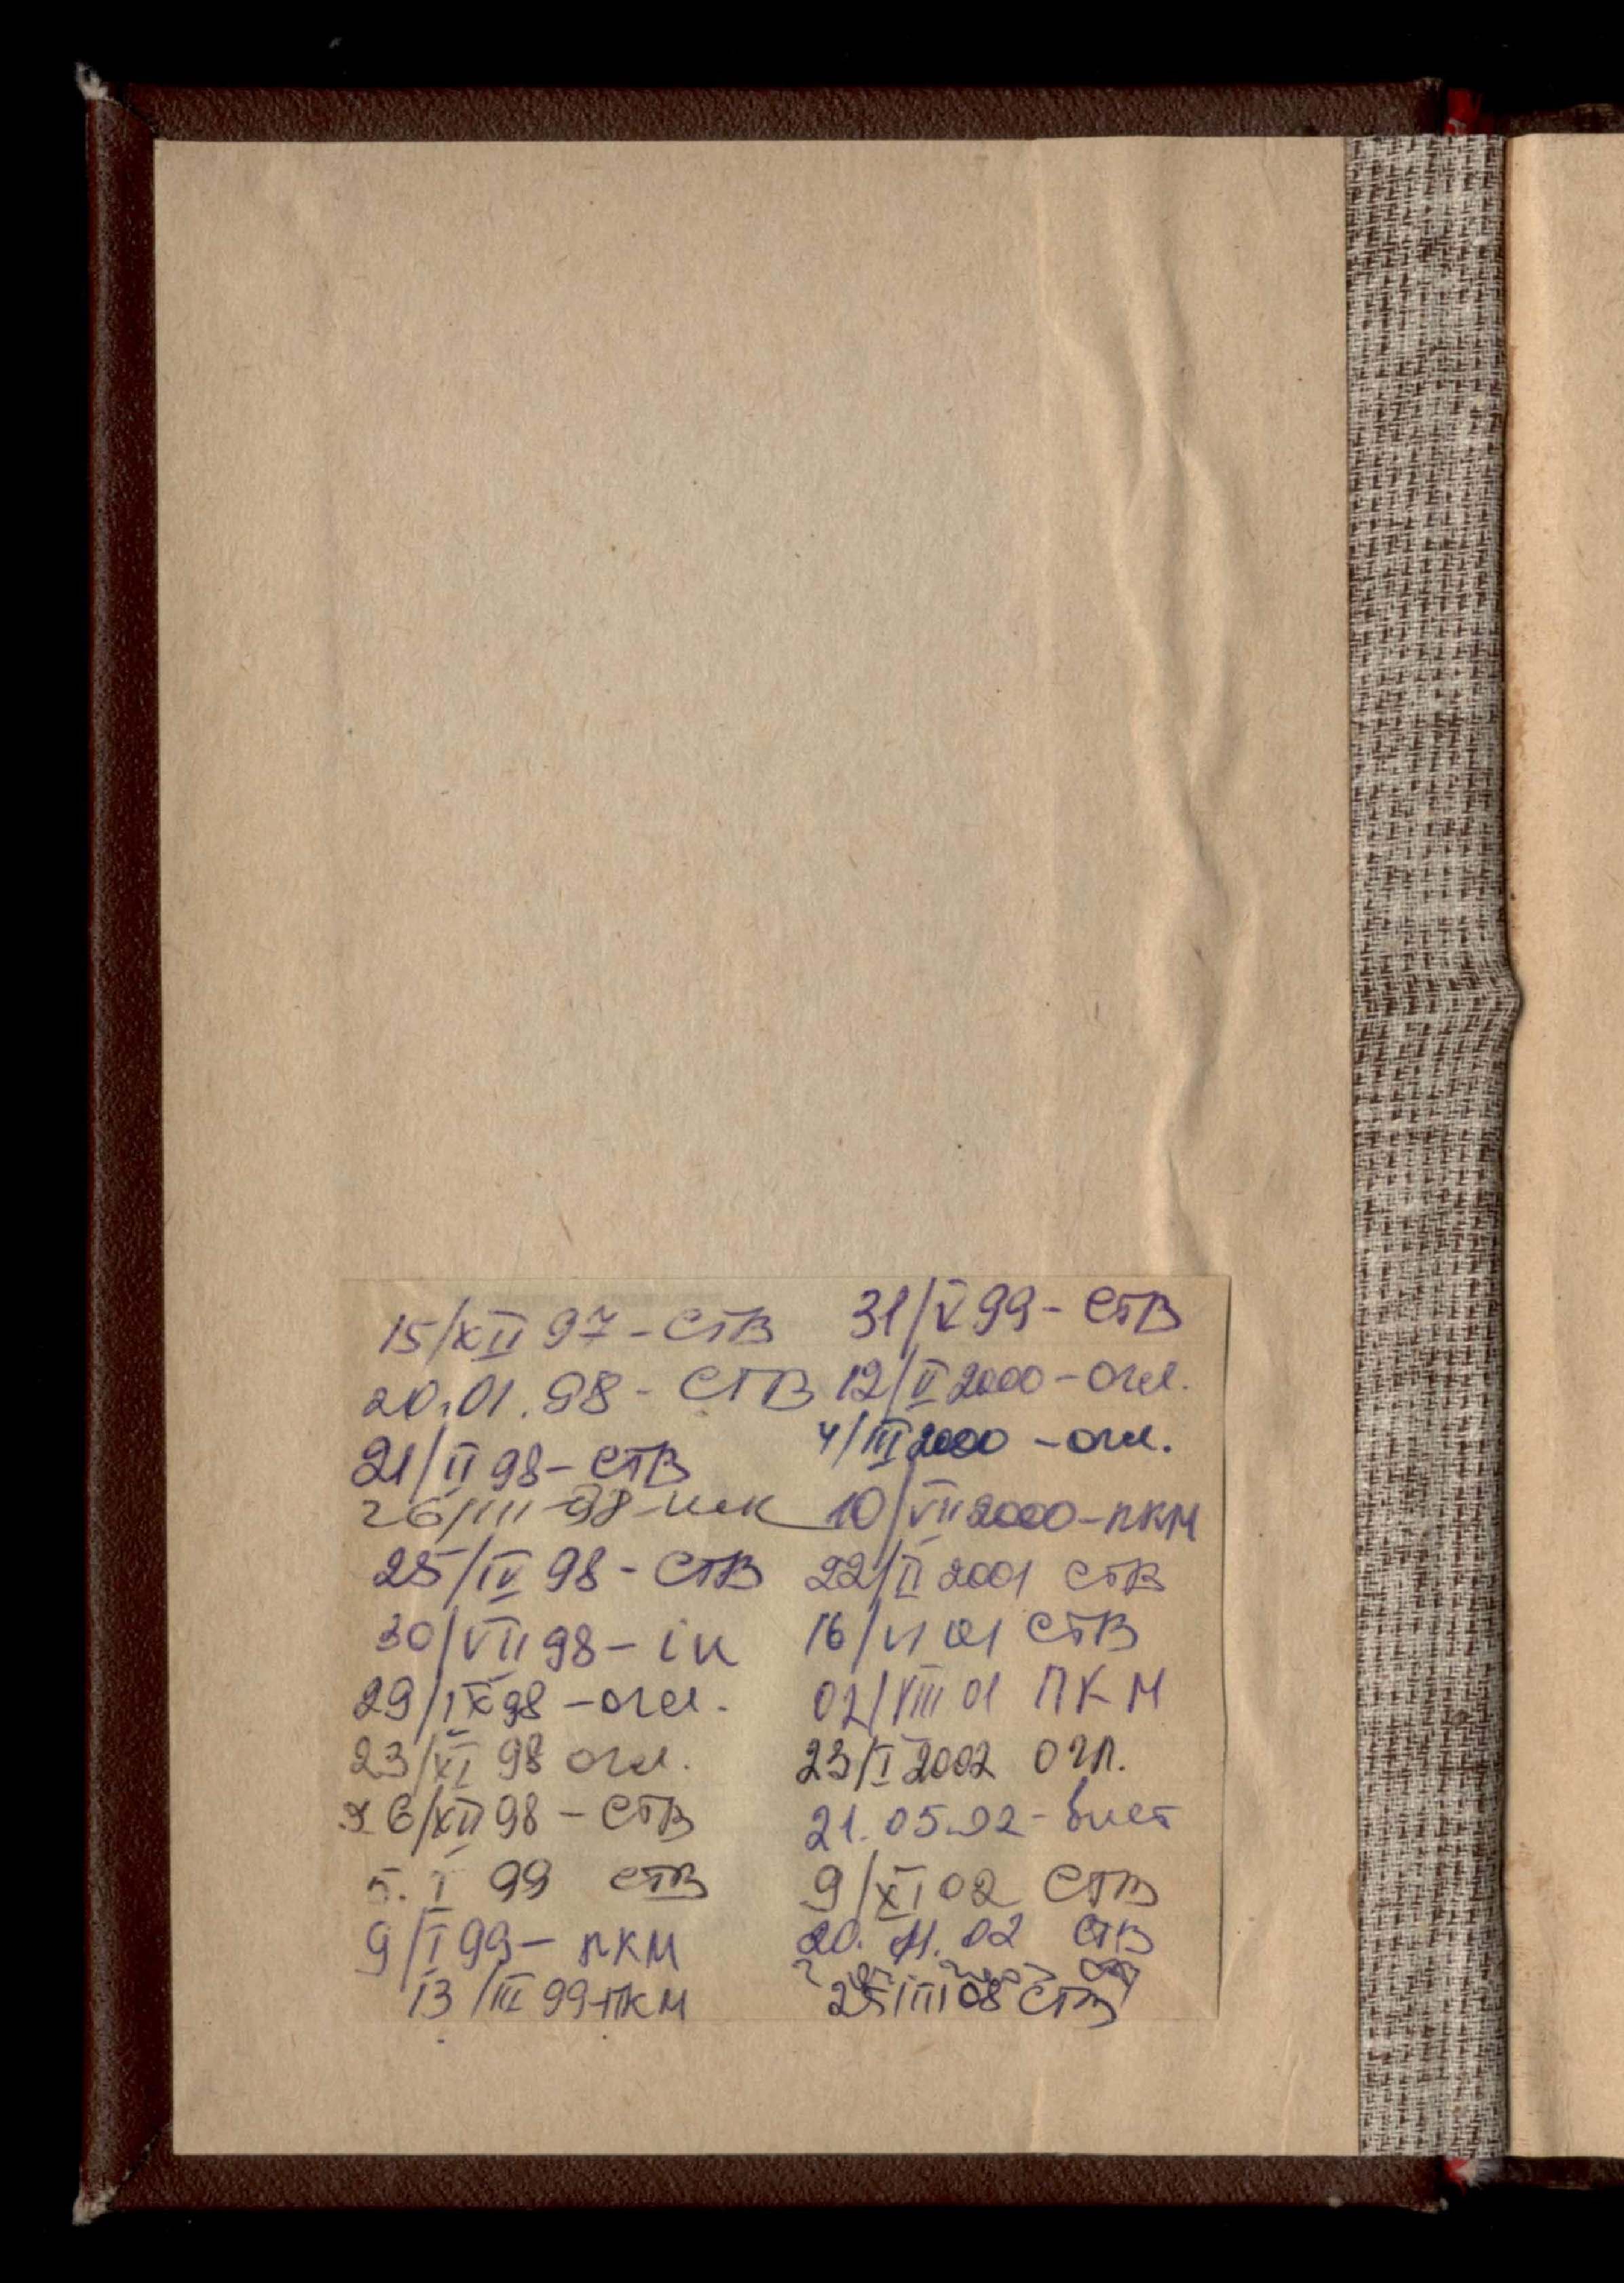 15/XII 97 - СТВ
20.01.98 - СТВ
21/II 98 - СТВ
26/III 98
25/IV 98 - СТВ
30/VII 98 - ік
29/IX 98 - огл.
23/XI 98 огл.
26/XII 98 - СТВ
5. I 99 СТВ
9/I 99 - ПКМ
13/III 99 - ПКМ
31/V 99 - СТВ
12/II 2000 - огл.
4/III 2000 - огл.
10/VII 2000 - ПКМ
22/II 2001 СТВ
16/VI 01 СТВ
02/VIII 01 ПКМ
23/I 2002 огл.
21.05.02 - вист
9/XI 02 СТВ
20.11.02 СТВ
25/III 08 СТВ